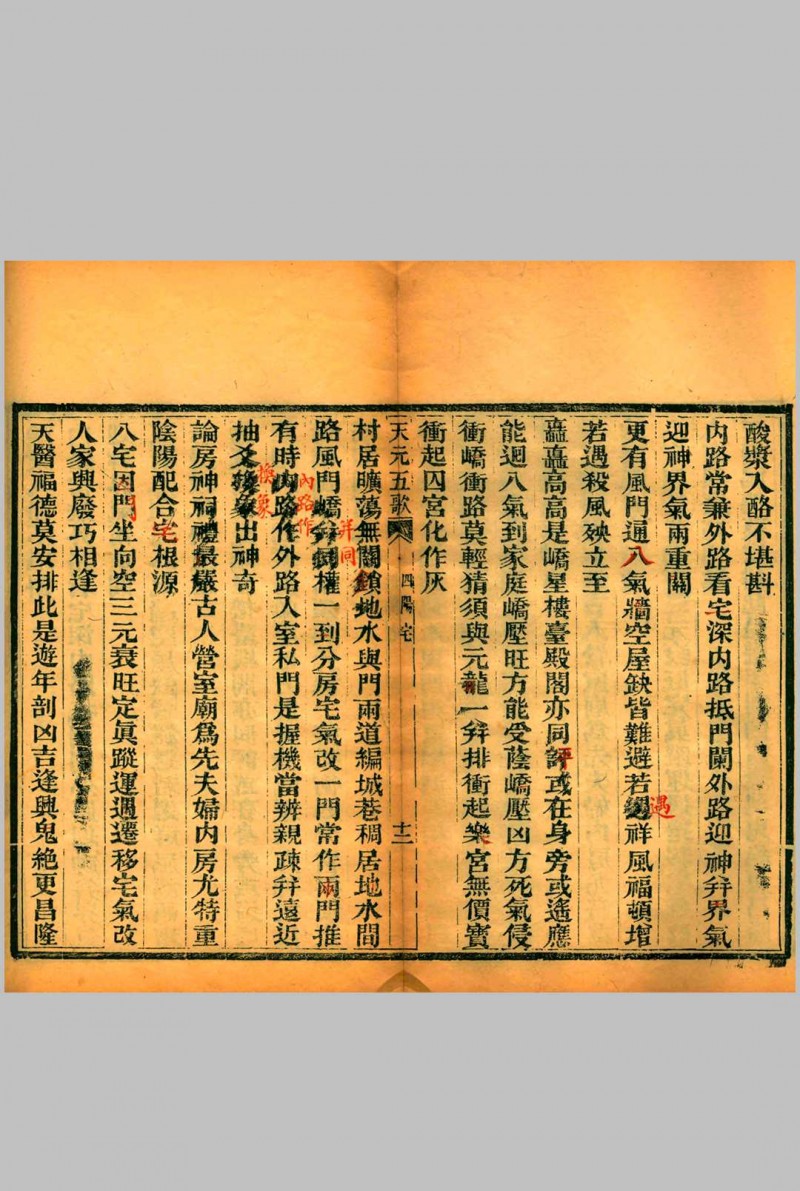 酸漿入酪不堪斟
內路常兼外路看宅深內路抵門闌外路迎神并界氣
迎神界氣兩重關
更有風門通八氣牆空屋缺皆難避若遇祥風福頓增
若遇殺風殃立至
矗矗高高是嶠星樓臺殿閣亦同評或在身旁或遙應
能迴八氣到家庭嶠壓旺方能受蔭嶠壓凶方死氣侵
衝嶠衝路莫輕猜須與元龍一并排衝起樂宮無價寶
衝起囚宮化作灰
天元五歌
四陽宅
十二
村居曠蕩無關鎖地水與門兩道編城巷稠居地水間
路風門嶠并同權一到分房宅氣改一門常作兩門推
并同
有時內路作外路入室私門是握機當辨親疎并遠近
內路作
抽爻換象出神奇
換象
論房神祠禮最嚴古人營室廟爲先夫婦內房尤特重
陰陽配合宅根源
八宅因門坐向空三元衰旺定眞蹤運遇遷移宅氣改
人家興廢巧相逢
天醫福德莫安排此是遊年剖凶吉逢興鬼絕更昌隆
遇